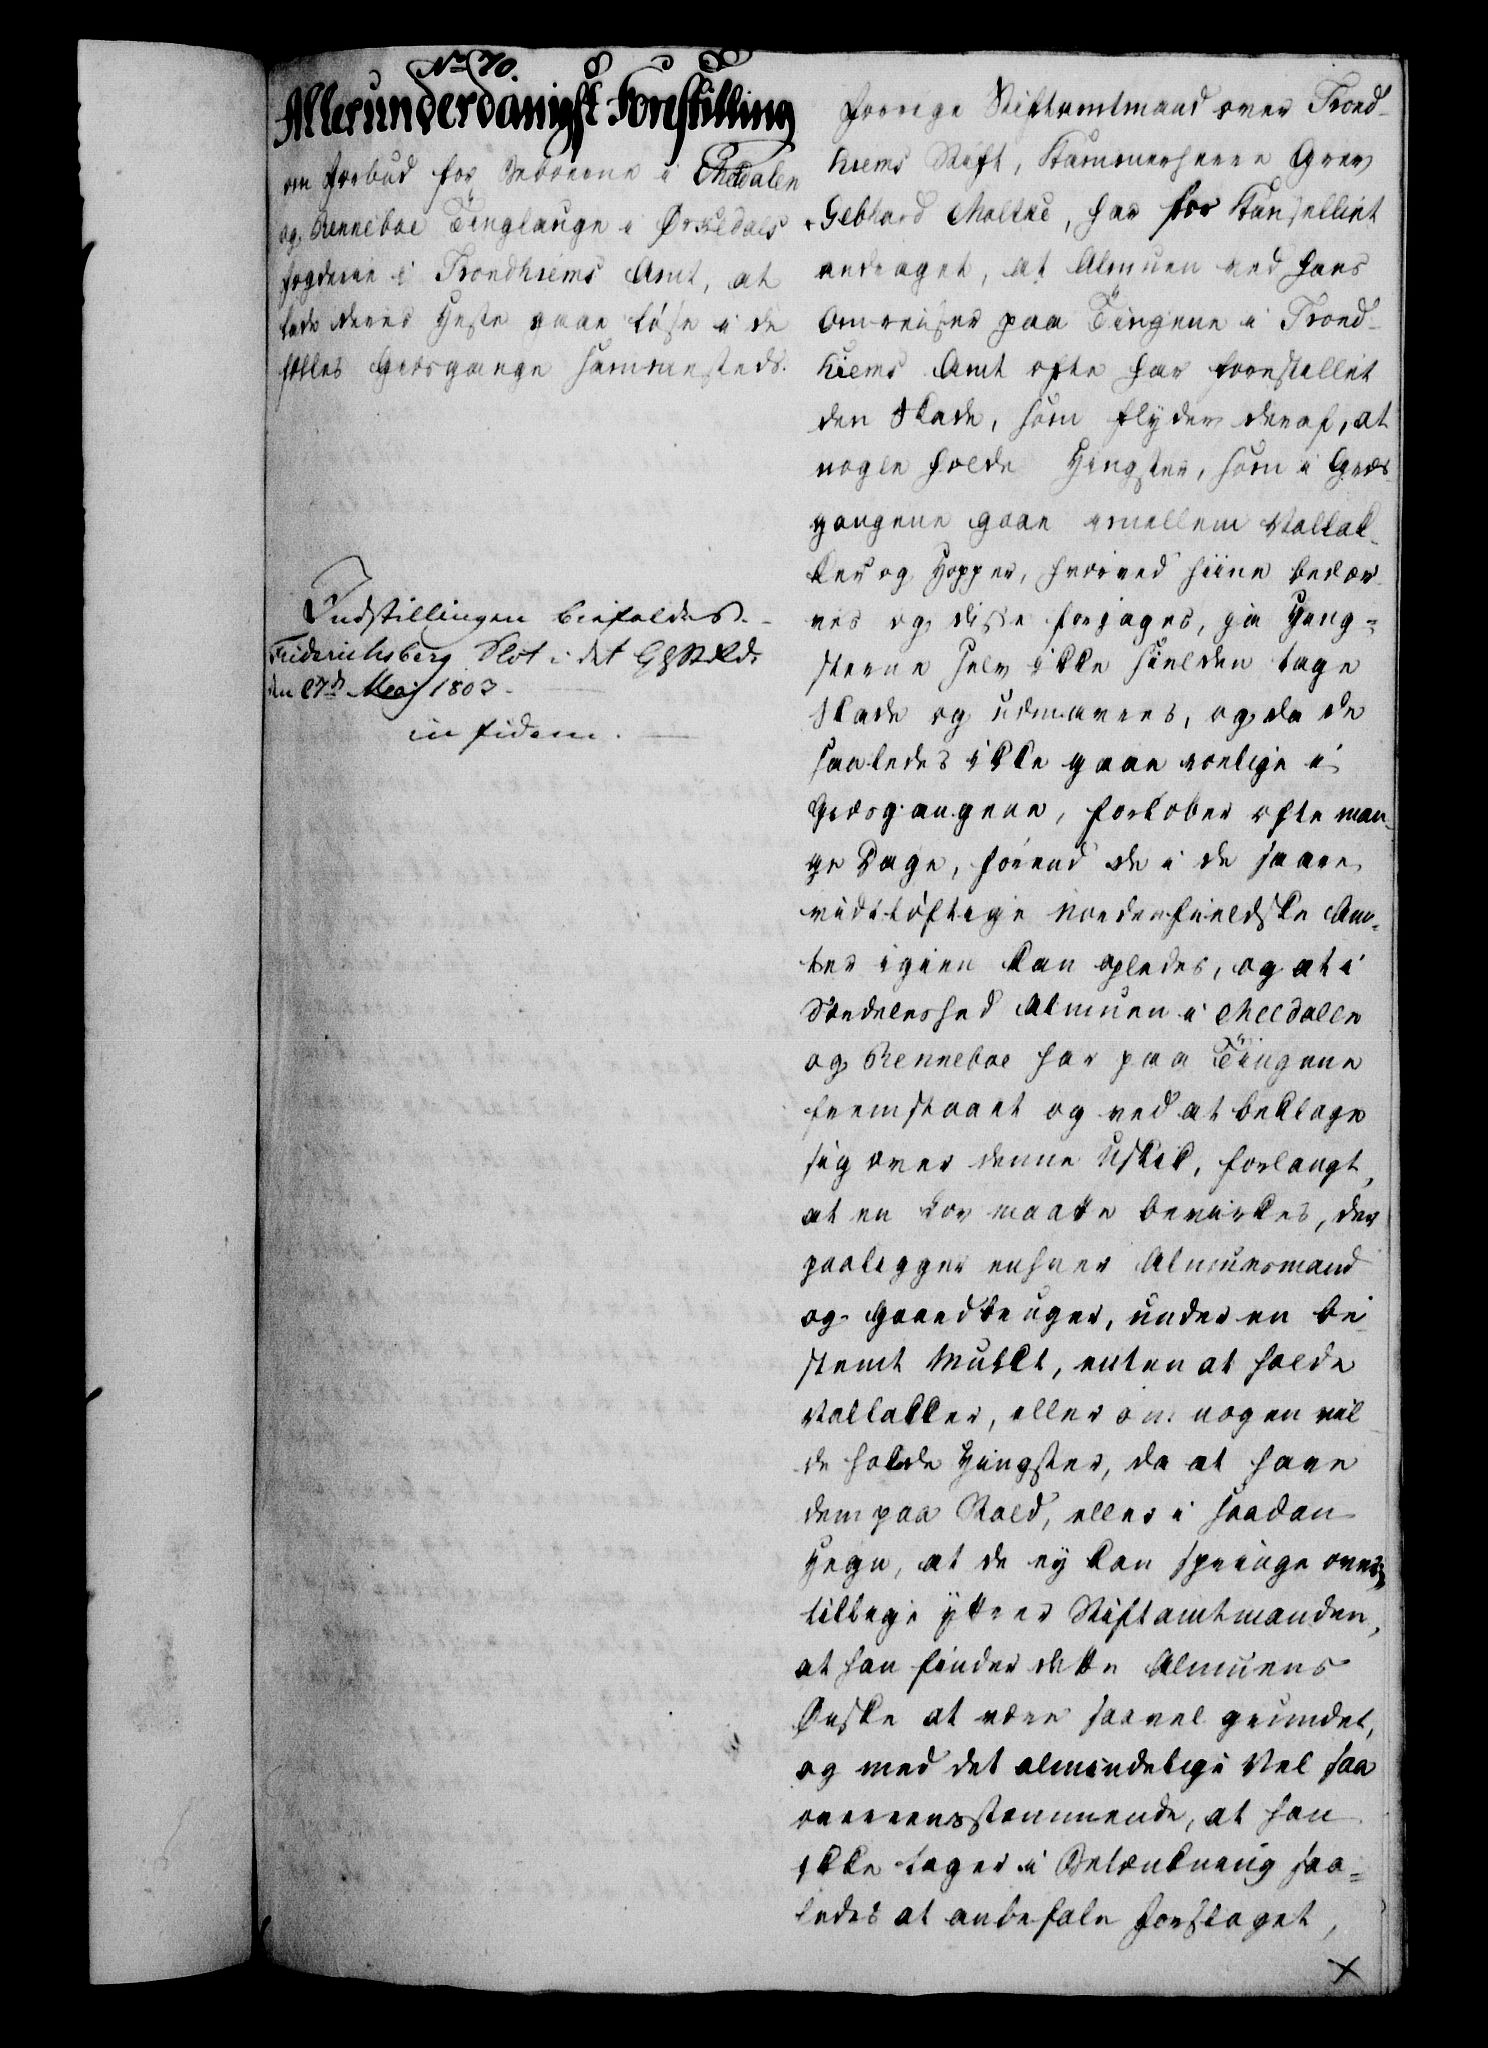 No 70.
Allerunderdanigst Forestilling
om Forbud for Beboerne i Meldalen
og Renneboe Tinglauge i Ørkedals
Fogderie i Trondhiems Amt, at
lade deres Heste gaae løse i de
fælles Græsgange sammesteds.
Indstillingen bifaldes.
Friderichsberg Slot i det
den 27d Maj 1803.
in fidem.
Forrige Stiftamtmand over Trond-
hiems Stift, Kammerherre Grev
Gebhard Moltke, har for Kanselliet
andraget, at Almuen ved hans
Omreiser paa Tingene i Trond-
hiems Amt ofte har forestillet
den Skade, som flyder deraf, at
nogle holde Hingster, som i Græs
gangene gaae imellem Vallak-
ker og Hopper, hvorved hiine bedær-
ves og disse forjages, ja Hing-
sterne selv ikke sielden tage
Skade og udmavres, og da de
saaledes ikke gaae roelige i
Græsgangene, forløber ofte man-
ge Dage, førend de i de saare
vidtløftige nordenfieldske Am-
ter igien kan opledes, og at i
Særdeleshed Almuen i Meldalen
og Renneboe har paa Tingene
fremstaaet og ved at beklage
sig over denne Uskik, forlangt,
at en Lov maatte bevirkes, der
paalegger enhver Almuesmand
og Gaardbruger, under en be
stemt Mulkt, enten at holde
Vallakker, eller om nogen vil
de holde Hingster, da at have
dem paa Stald, eller i saadan
Hegn, at de ej kan springe over;
tillige yttrer Stiftamtmanden,
at han finder dette Almuens
Ønske at være saavel grundet,
og med det almindelige Vel saa
overeensstemmende, at han
ikke tager i Betænkning saa-
ledes at anbefale Forslaget,
x